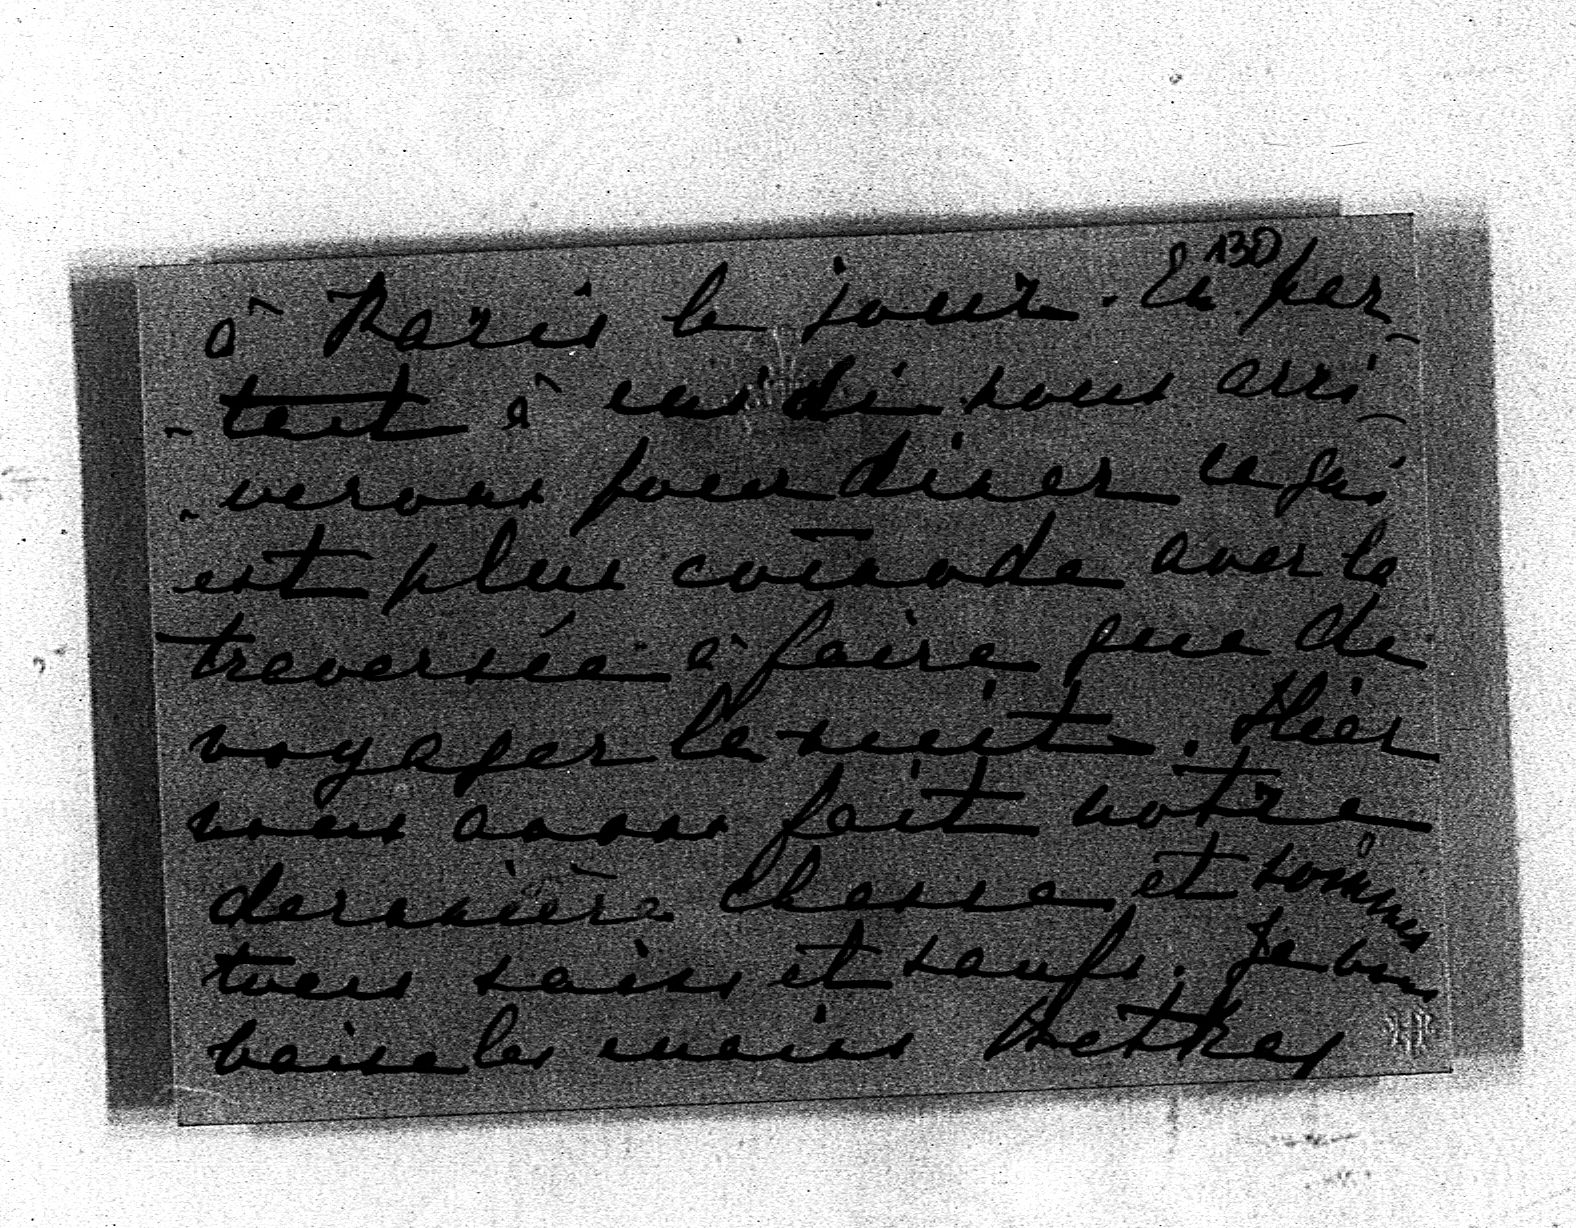 130
à Paris le jour. En par-
-tant à midi nous arri-
-verons pour diner ce qui
est plus commode avec la
traversée à faire que de
voyager la nuit. Hier
nous avons fait notre
dernière chasse et sommes
tous sains et saufs. Je vous
baise les mains